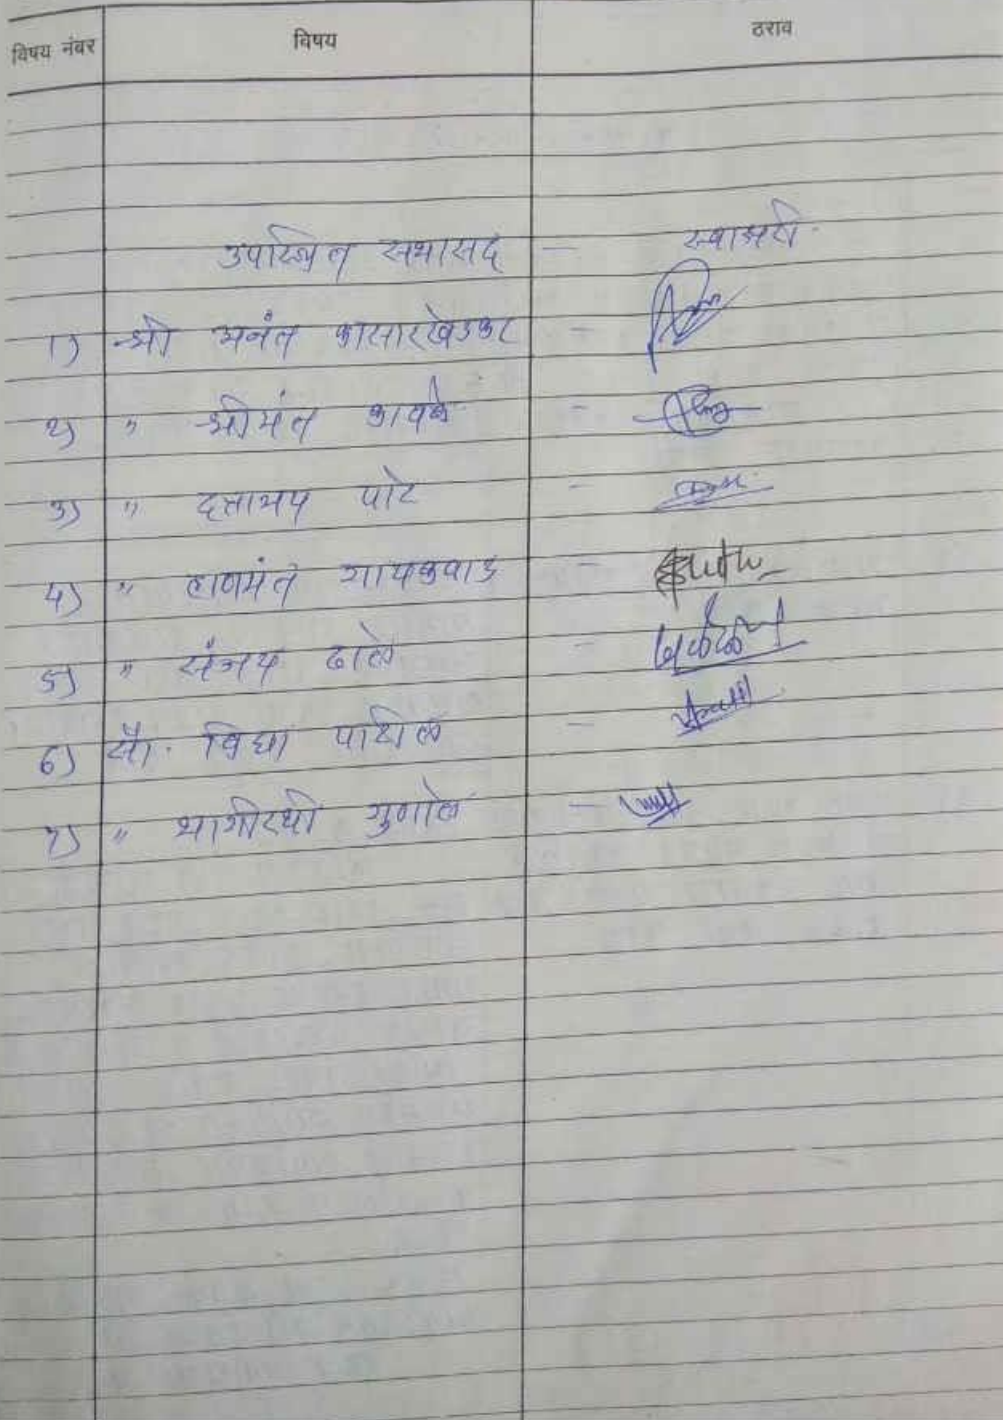 विषय नंबर विषय ठराव
उपस्थित सभासद - स्वाक्षरी.
1) श्री अनंत कासारखेडकर -
2) " श्रीमंत कावळे -
3) " दत्तात्रय पोटे -
4) " हाणमंत गायकवाड -
5) " संजय ढोले -
6) सौ. विद्या पाटील -
7) " भागीरथी गुणाले -